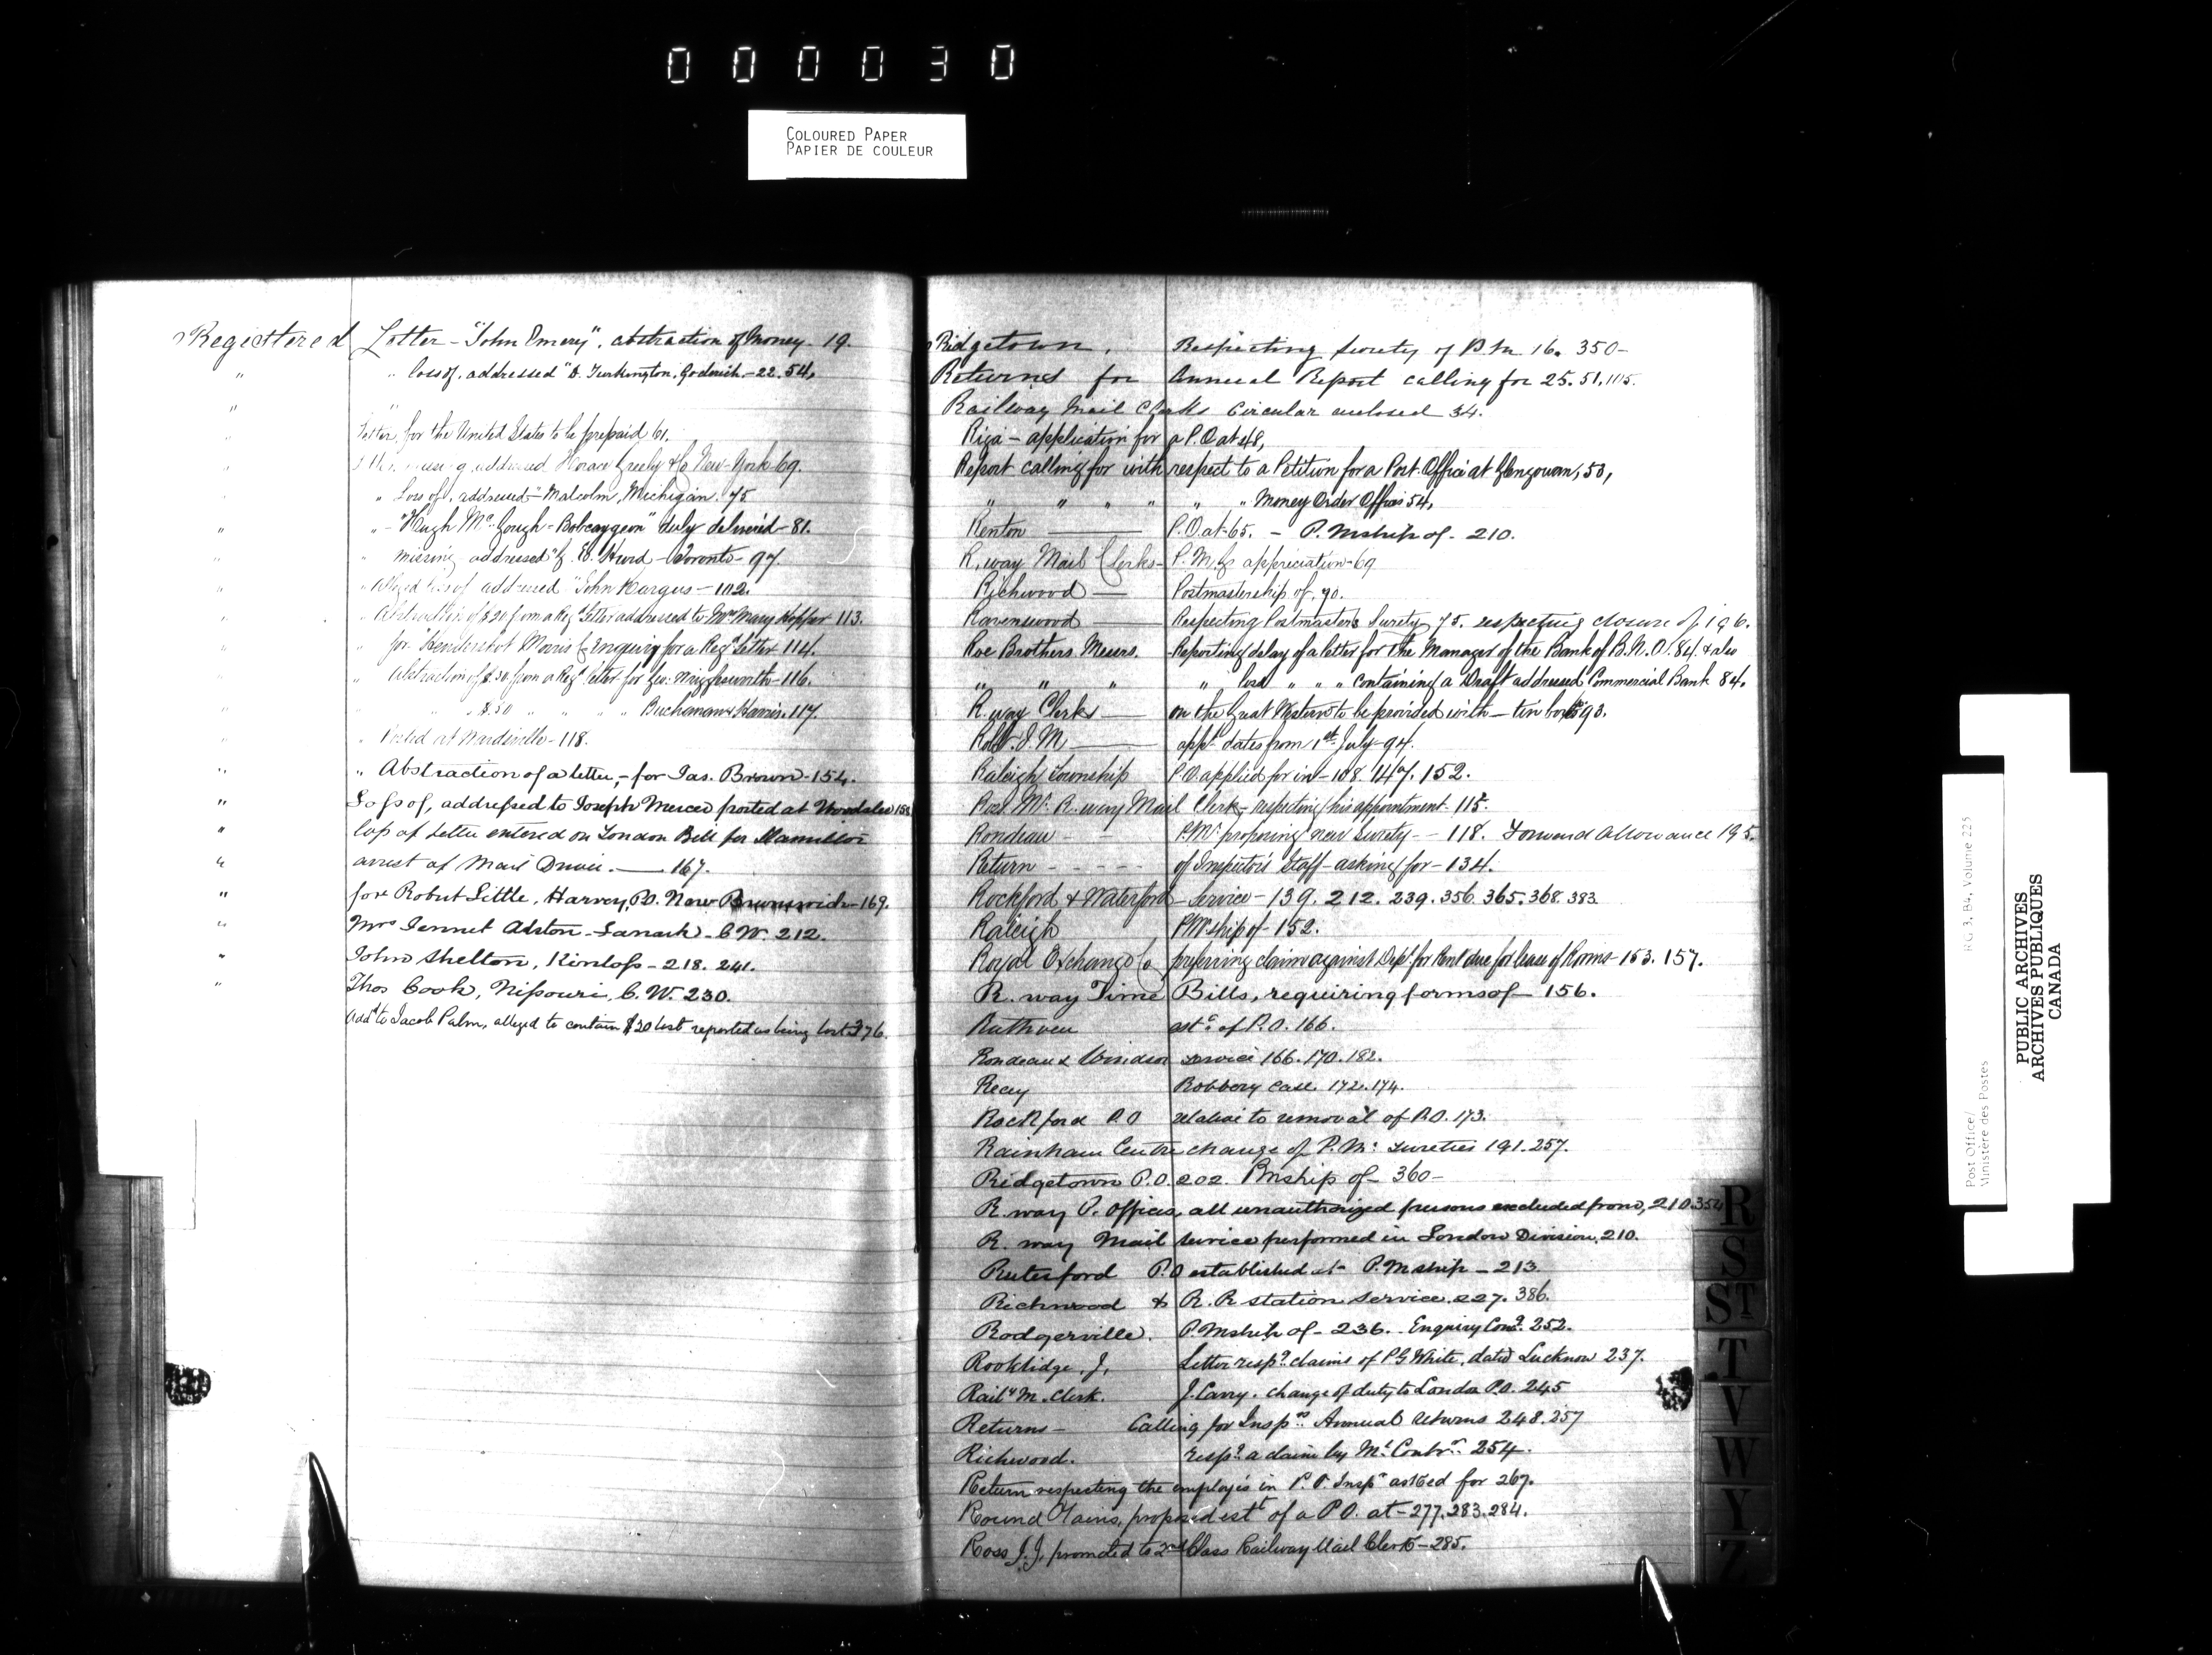 000030
COLOURED PAPER
PAPIER DE COULEUR
Registered Letter - "John Emery", abstraction of Money 19.
" " loss of, addressed "D. Turkington, Goderich - 22. 54,
" "
" Letter, for the United States to be prepaid 61.
" addressed Horace Greely & Co New-York-69.
" " Loss of, addressed - Malcolm, Michigan. 75
" " - "Hugh Mc Gough - Bobcaygeon" duly delivered - 81.
" " missing addressed " Hurd - Toronto - 97.
" " Alleged loss of addressed "John Kargus - 102.
" " Abstraction of $20 from a Regd Letter addressed to Mrs Mary Hopper 113.
" " for Hendershot Morris Enquiry for a Regd Letter 114.
" " Abstraction of $30 from a Regd letter for Geo: 116.
" " " $30 " " " " Buchanan & Harris. 117.
" " Posted at Wardsville - 118.
" " Abstraction of a letter, - for Jas. Brown - 154.
" Loss of, addressed to Joseph Mercer posted at Woodslee 158
" loss of Letter entered on London Bill for Hamilton
" arrest of Mail Driver. — 167.
" for Robert Little, Harvey, P.O. New Brunswick - 169.
" Mrs Jennet Alston - Lanark - C.W. 212.
" John Shelton, Kinloss - 218. 241.
" Thos Cook, Nissouri, C.W. 230.
Addd to Jacob Palm, alleged to contain $20 lost reported as being lost 376.
Ridgetown, Respecting Surety of P.M. 16. 350 -
Returns for Annual Report calling for 25. 51. 105.
Railway Mail Clerks Circular enclosed 34.
Riga - application for a P.O at 48,
Report calling for with respect to a Petition for a Post Office at Glengowan, 53,
" " " " " " Money Order Offices 54,
Renton — P.O at - 65. - P. Mship of - 210.
R. way Mail Clerks - P. M. G appreciation - 69
Richwood — Postmastership of. 70.
Ravenswood — Respecting Postmasters Surety 75. respecting closure of 196.
Roe Brothers Messrs. Reporting delay of a letter for the Manager of the Bank of B.N.A. 84. & also
" " " " loss " " " containing a Draft addressed Commercial Bank 84.
R. way Clerks — on the Great Western to be provided with - tin boxes 93.
Robt. J. M — appt dates from 1st July - 94.
Raleigh Township P.O. applied for in - 108. 147. 152.
Ross Mr. R. way Mail Clerk - respecting his appointment. 115.
Rondeau - - P.Mr proposing new Surety - - 118. Forward Allowance 195.
Return - - - - of Inspector's Staff - asking for - 134.
Rockford & Waterford - Service - 139. 212. 239. 356. 365. 368. 383.
Raleigh P.M.ship of - 152.
Royal Exchange Co preferring claim against Dept for Rent due for lease of Rooms - 153. 157.
R. way Time Bills, requiring forms of - 156.
Ruthven of P.O. 166.
Rondeau & Windsor service 166. 170. 182.
Recey Robbery case. 172. 174.
Rockford P.O relative to removal of P.O. 173.
Rainham Centre change of P.Mr Sureties 191. 257.
Ridgetown P.O. 202. Pmship of - 360 -
R. way P. Offices, all unauthorized persons excluded from, 210. 354
R. way Mail service performed in London Division, 210.
Rutesford P.O established at - P.M ship - 213.
Richwood & R.R station service. 227. 386.
Rodgerville. P.Mship of - 236. - Enquiry Cong. 252.
Rooklidge, J, Letter respg. claims of P G White, dated Lucknow 237.
Raily M. Clerk. J. Carry. change of duty to London P.O. 245
Returns - Calling for Insprs Annual returns 248. 257
Richwood. respg. a claim by Ml Contr. 254.
Return respecting the employés in P.O Inspr asked for 267.
Round Plains, proposed estt of a P.O. at - 277. 283. 284.
Ross J.J. promoted to 2nd Class Railway Mail Clerk - 285.
R
S
ST
T
V
W
Y
Z
Post Office/
Ministère des Postes
RG 3, B4, Volume 225
PUBLIC ARCHIVES
ARCHIVES PUBLIQUES
CANADA